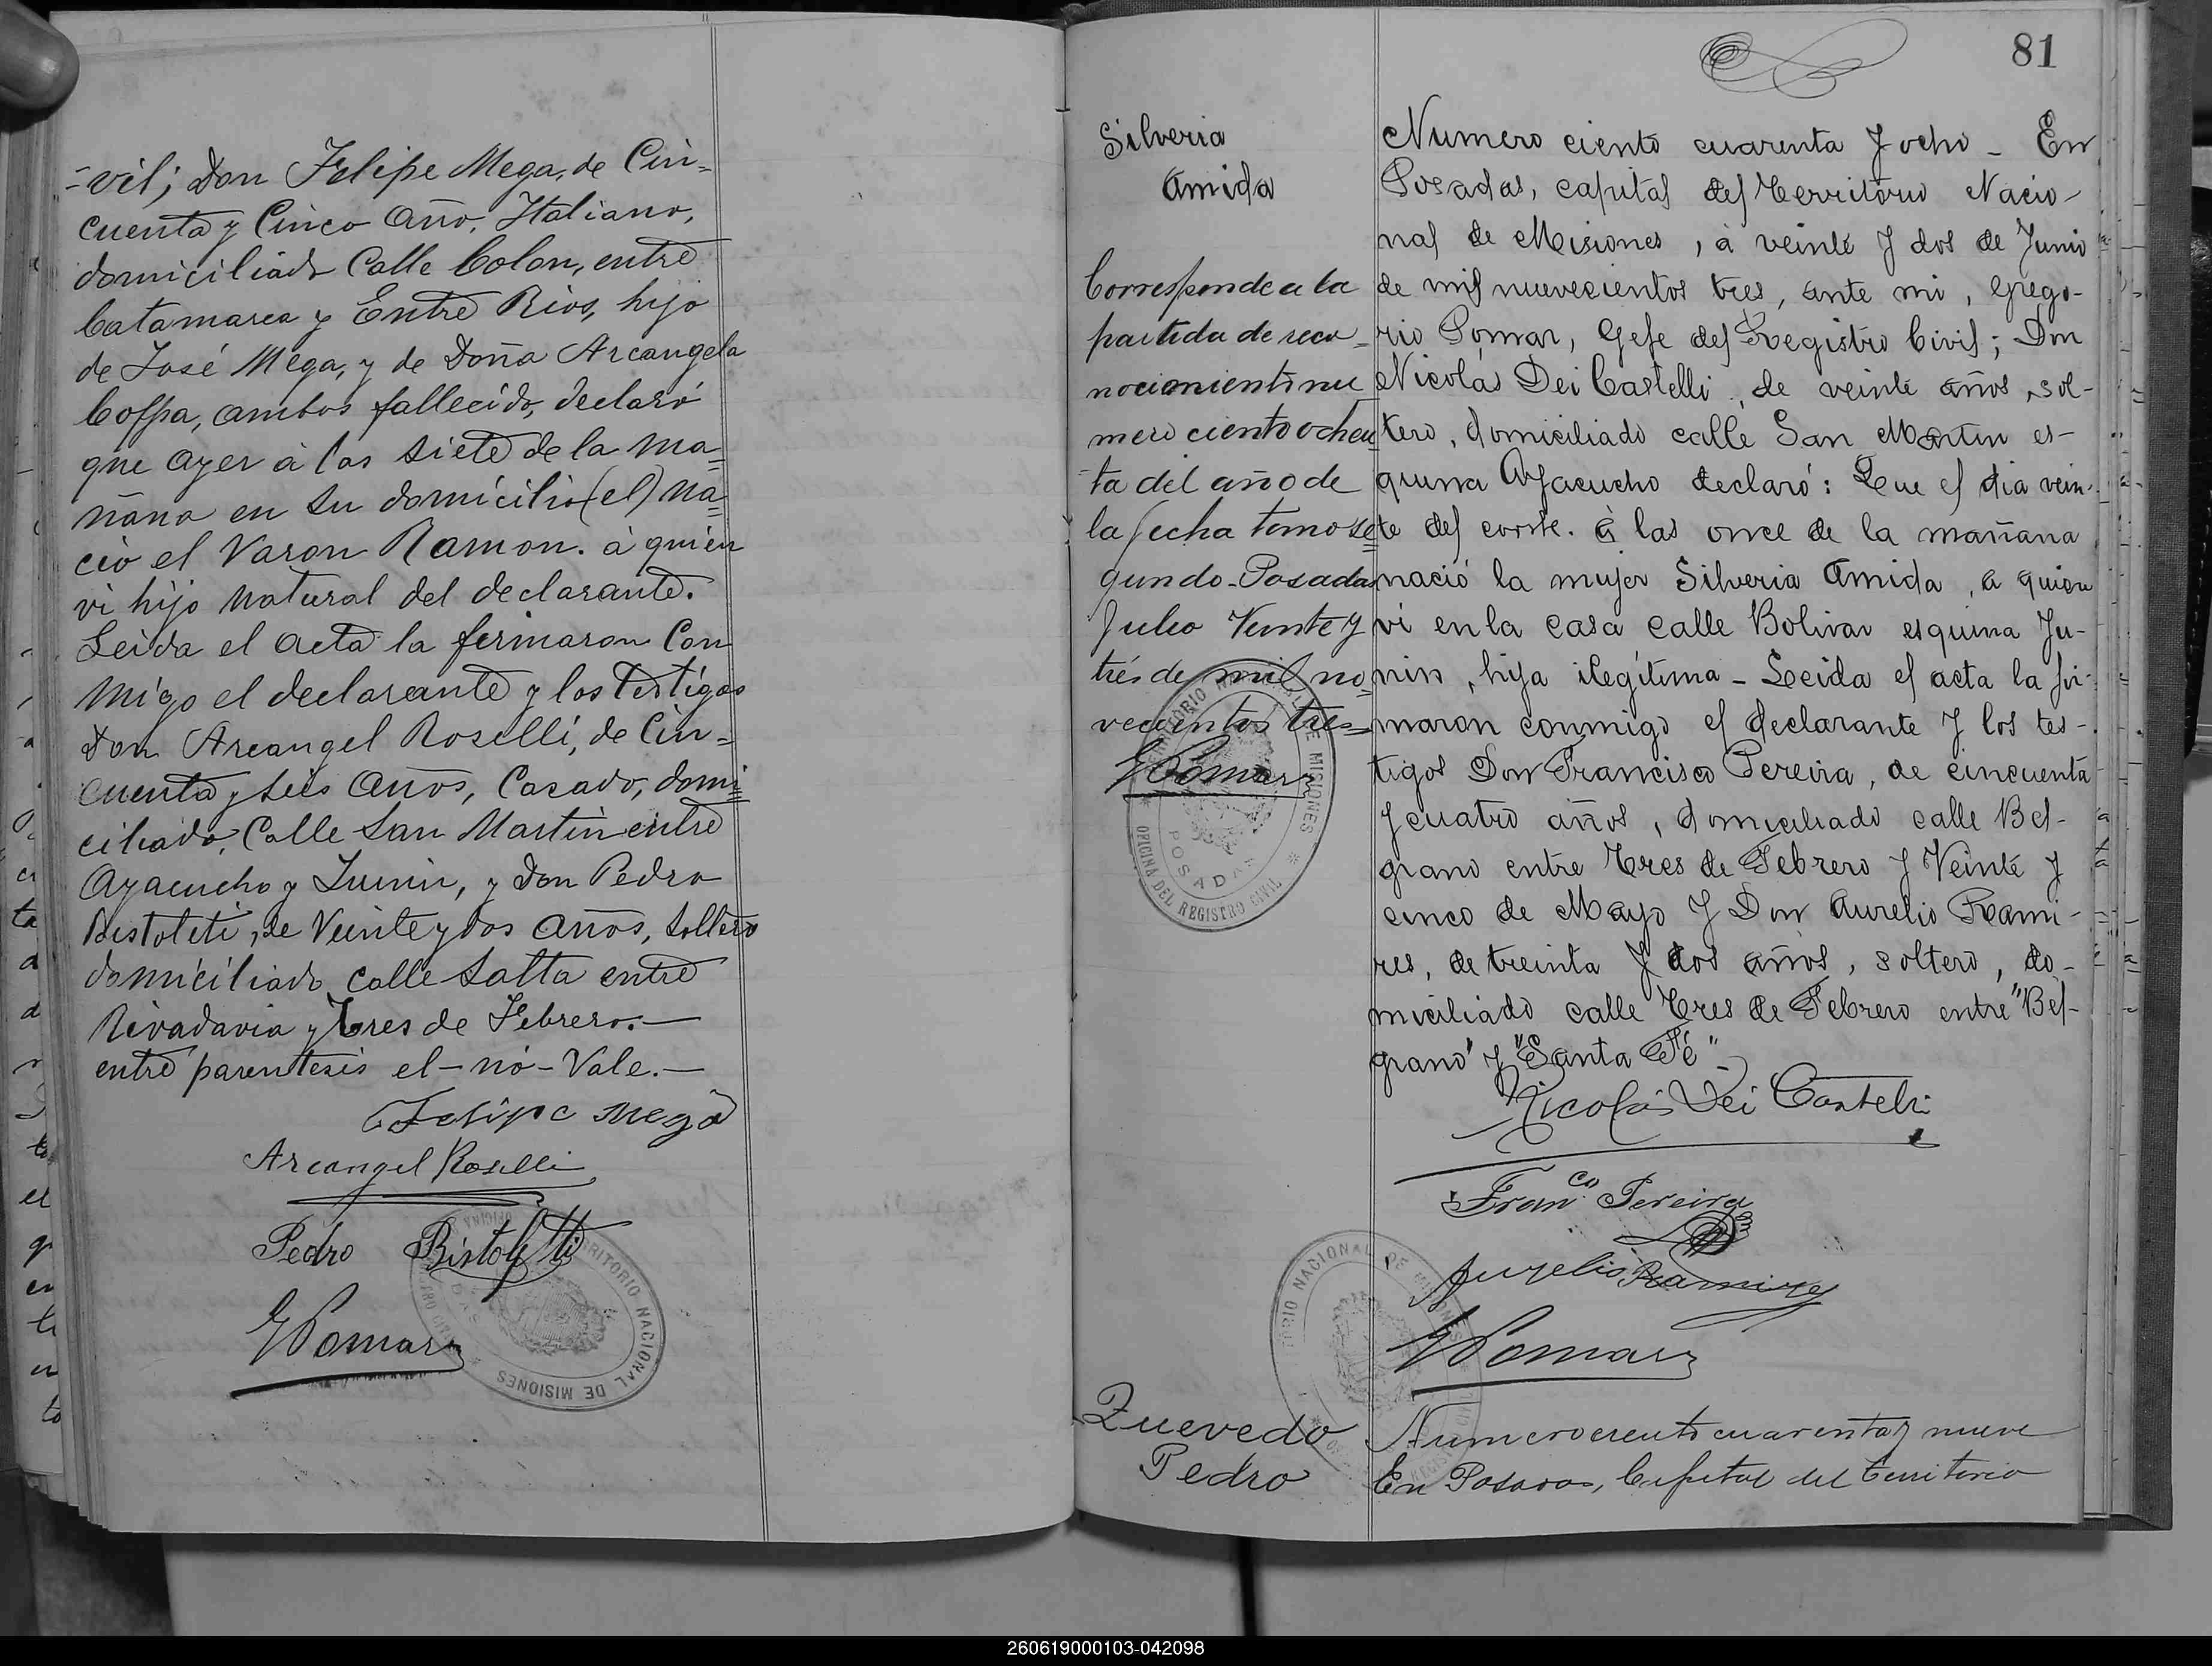 -vil; Don Felipe Mega, de Cin=
cuenta y Cinco Año, Italiano,
domiciliado Calle Colon, entre
Catamarca y Entre Rios, hijo
de José Mega, y de Doña Arcangela
Coppa, ambos fallecido, declaró
que ayer à las siete de la ma=
ñana en su domicilio (el) na=
ció el Varon Ramon. à quién
vi hijo natural del declarante.
Leida el acta la firmaron Con
migo el declarante y los testigos
Don Arcangel Roselli, de Cin=
cuenta y seis años, Casado, domi=
ciliado, Calle San Martin entre
Ayacucho y Junin, y Don Pedro
Bistoleti, de Veinte y dos años, soltero
domiciliado calle Salta entre
Rivadavia y Tres de Febrero.—
entre parentesis el-no-Vale.—
Felipe Mega
Arcangel Roselli
Pedro Bistoletti
GPomar
TERRITORIO NACIONAL DE MISIONES
81
Silveria
Amida
Corresponde a la
partida de reco-
nocimiento nu
mero ciento ochen
ta del año de
la fecha tomo se=
gundo-Posadas
Julio Veinte y
trés de mil no=
vecientos tres=
GPomar
TERRITORIO NACIONAL DE MISIONES
POSADAS
OFICINA DEL REGISTRO CIVIL
Numero ciento cuarenta y ocho - En
Posadas, capital del Territorio Nacio-
nal de Misiones, à veinte y dos de Junio
de mil nuevecientos tres, ante mi, Grego-
rio Pomar, Gefe del Registro Civil; Don
Nicolás Dei Castelli, de veinte años, sol-
tero, domiciliado calle San Martin es-
quina Ayacucho declaró: Que el dia vein-
te del corrte. à las once de la mañana
nació la mujer Silveria Amida, a quien
vi en la casa calle Bolivar esquina Ju-
nin, hija ilegítima - Leida el acta la fir-
maron conmigo el declarante y los tes-
tigos Don Francisco Pereira, de cincuenta
y cuatro años, domiciliado calle Bel-
grano entre Tres de Febrero y Veinte y
cinco de Mayo y Don Aurelio Rami-
res, de treinta y dos años, soltero, do-
miciliado calle Tres de Febrero entre "Bel-
grano" y "Santa Fé"-
Nicolás Dei Casteli
Franco. Pereira
Aurelio Ramirez
GPomar
TORIO NACIONAL DE MISIONES
Quevedo
Pedro
Numero ciento cuarenta y nueve
En Posadas, Capital del territorio
260619000103-042098